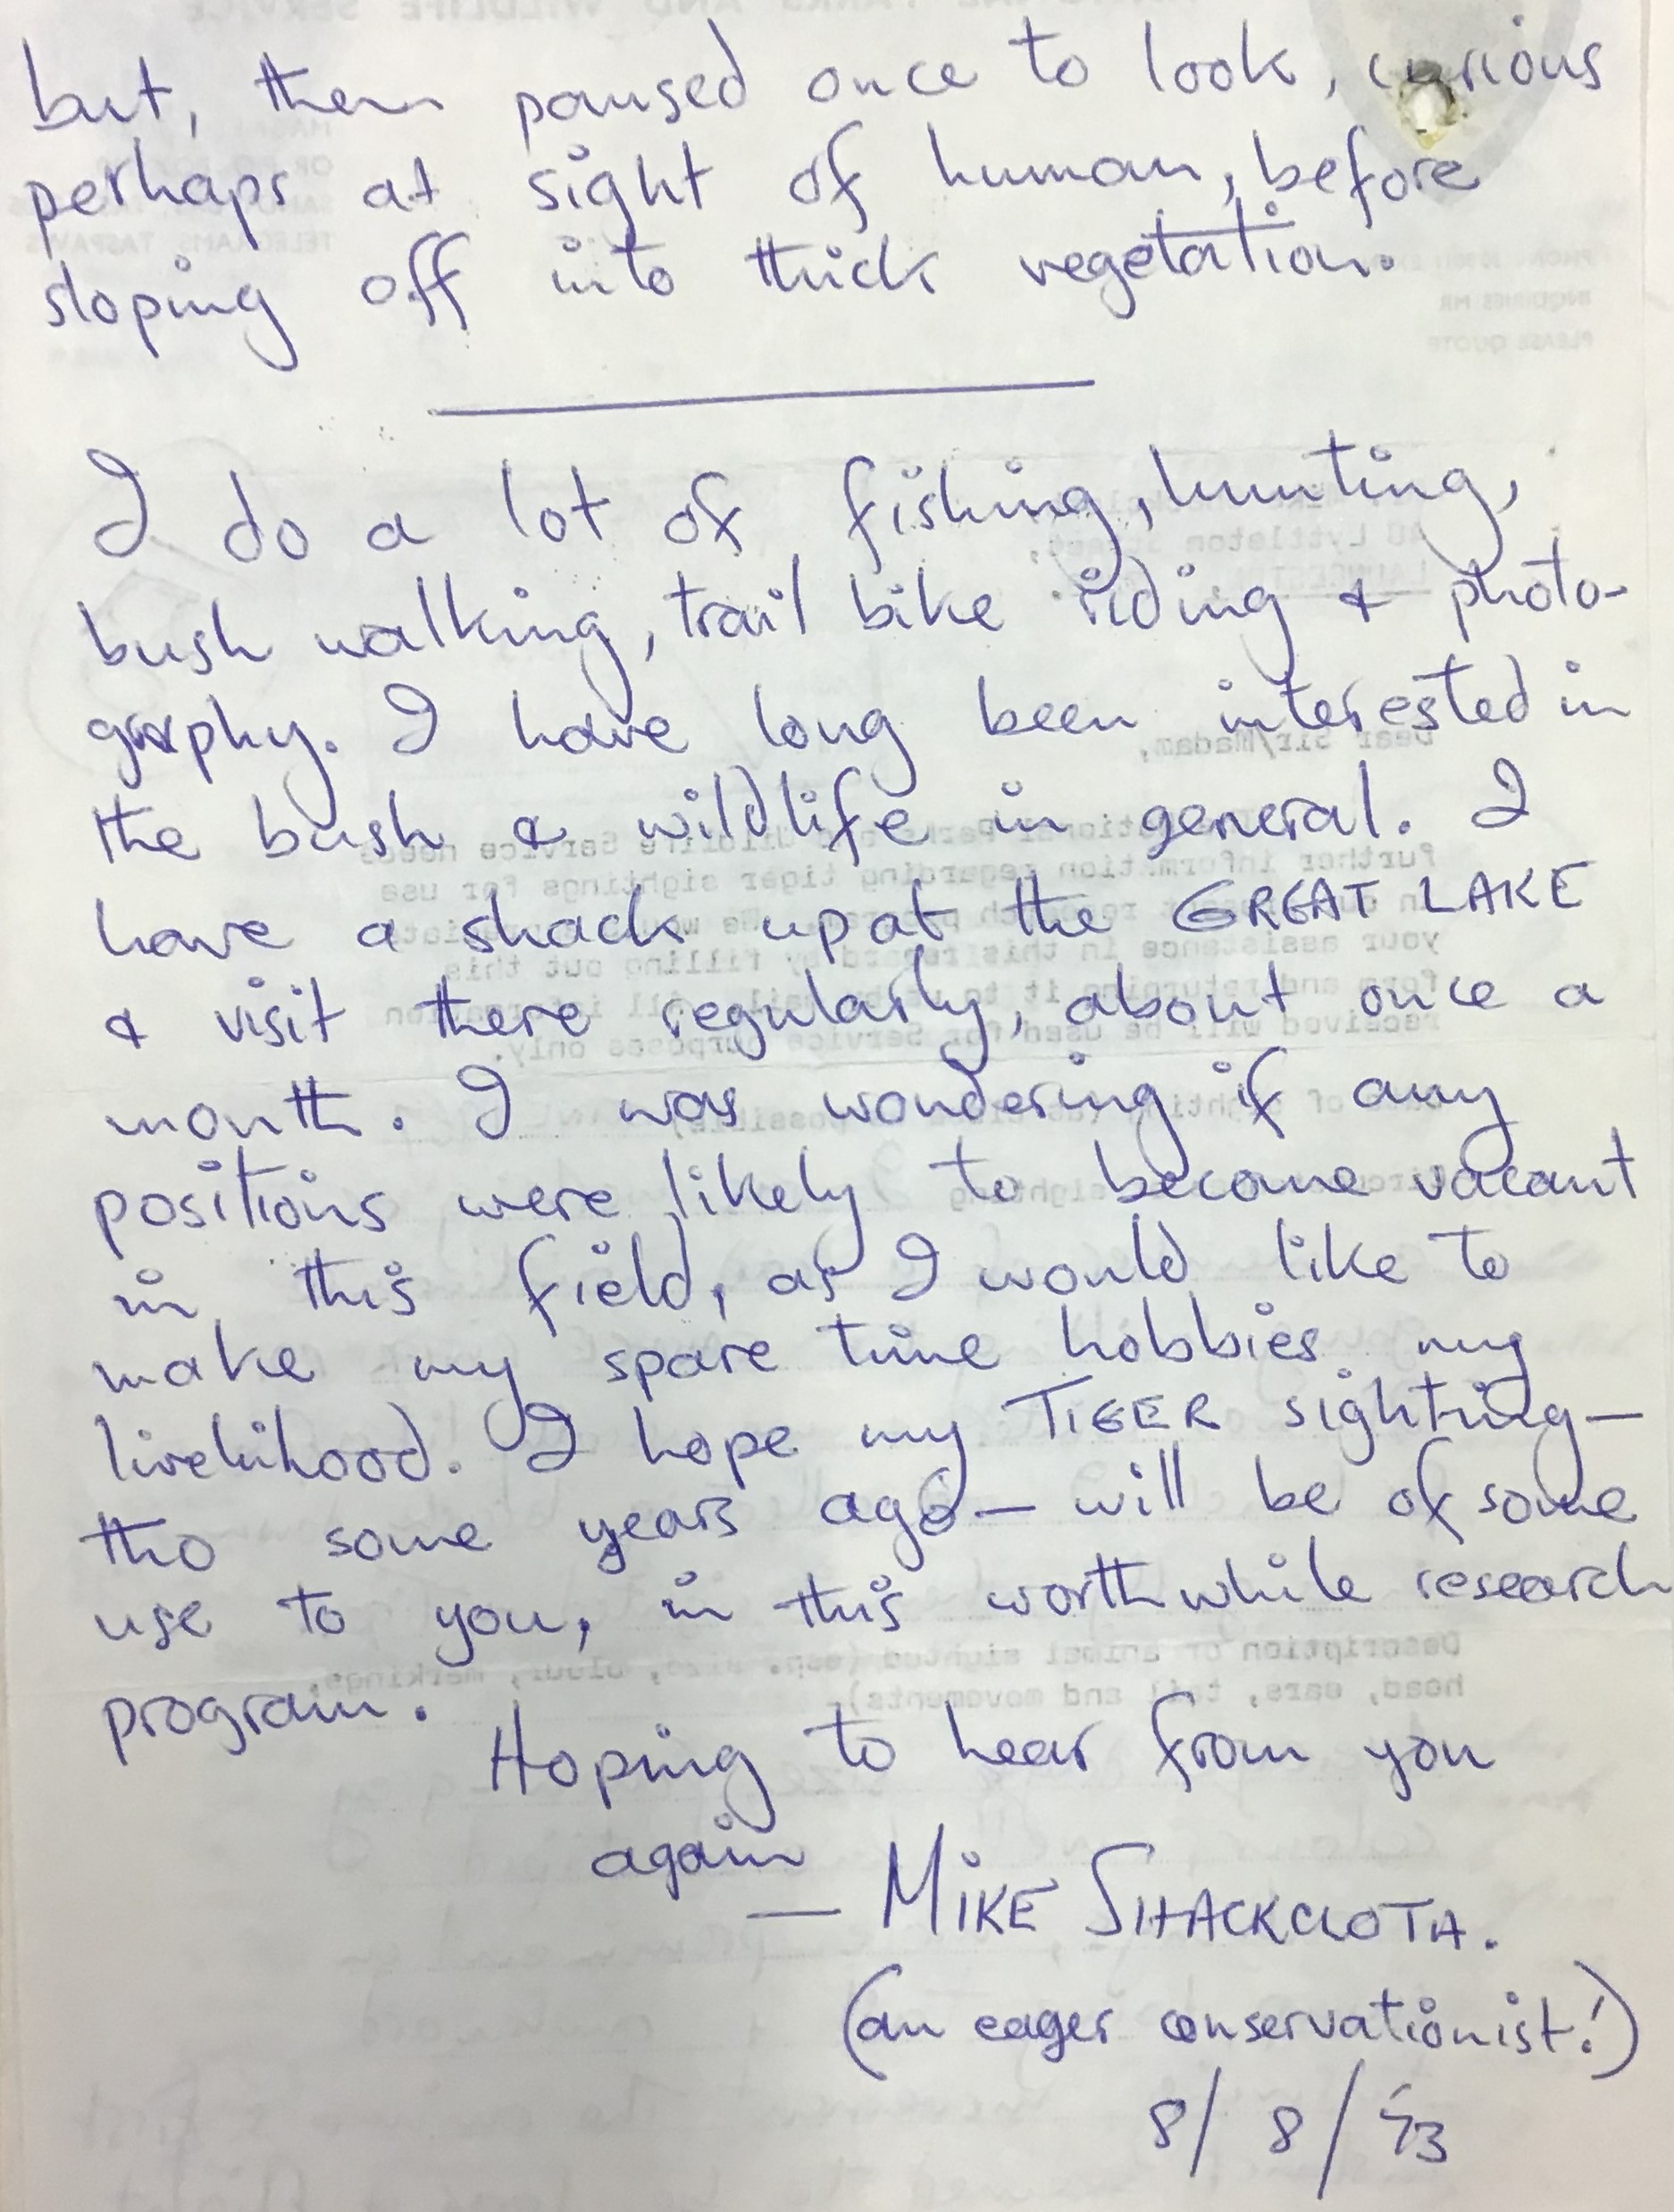 but, then paused once to look, curious
perhaps at sight of human, before
sloping off into thick vegetation.
I do a lot of fishing, hunting,
bush walking, trail bike riding & photo-
graphy. I have long been interested in
the bush & wildlife in general. I
have a shack up at the GREAT LAKE
& visit there regularly, about once a
month. I was wondering if any
positions were likely to become vacant
in this field, as I would like to
make my spare time hobbies my
livelihood. I hope my TIGER sighting—
tho some years ago — will be of some
use to you, in this worthwhile research
program.
Hoping to hear from you
again
— MIKE SHACKCLOTH.
(an eager conservationist!)
8/ 8 / '73